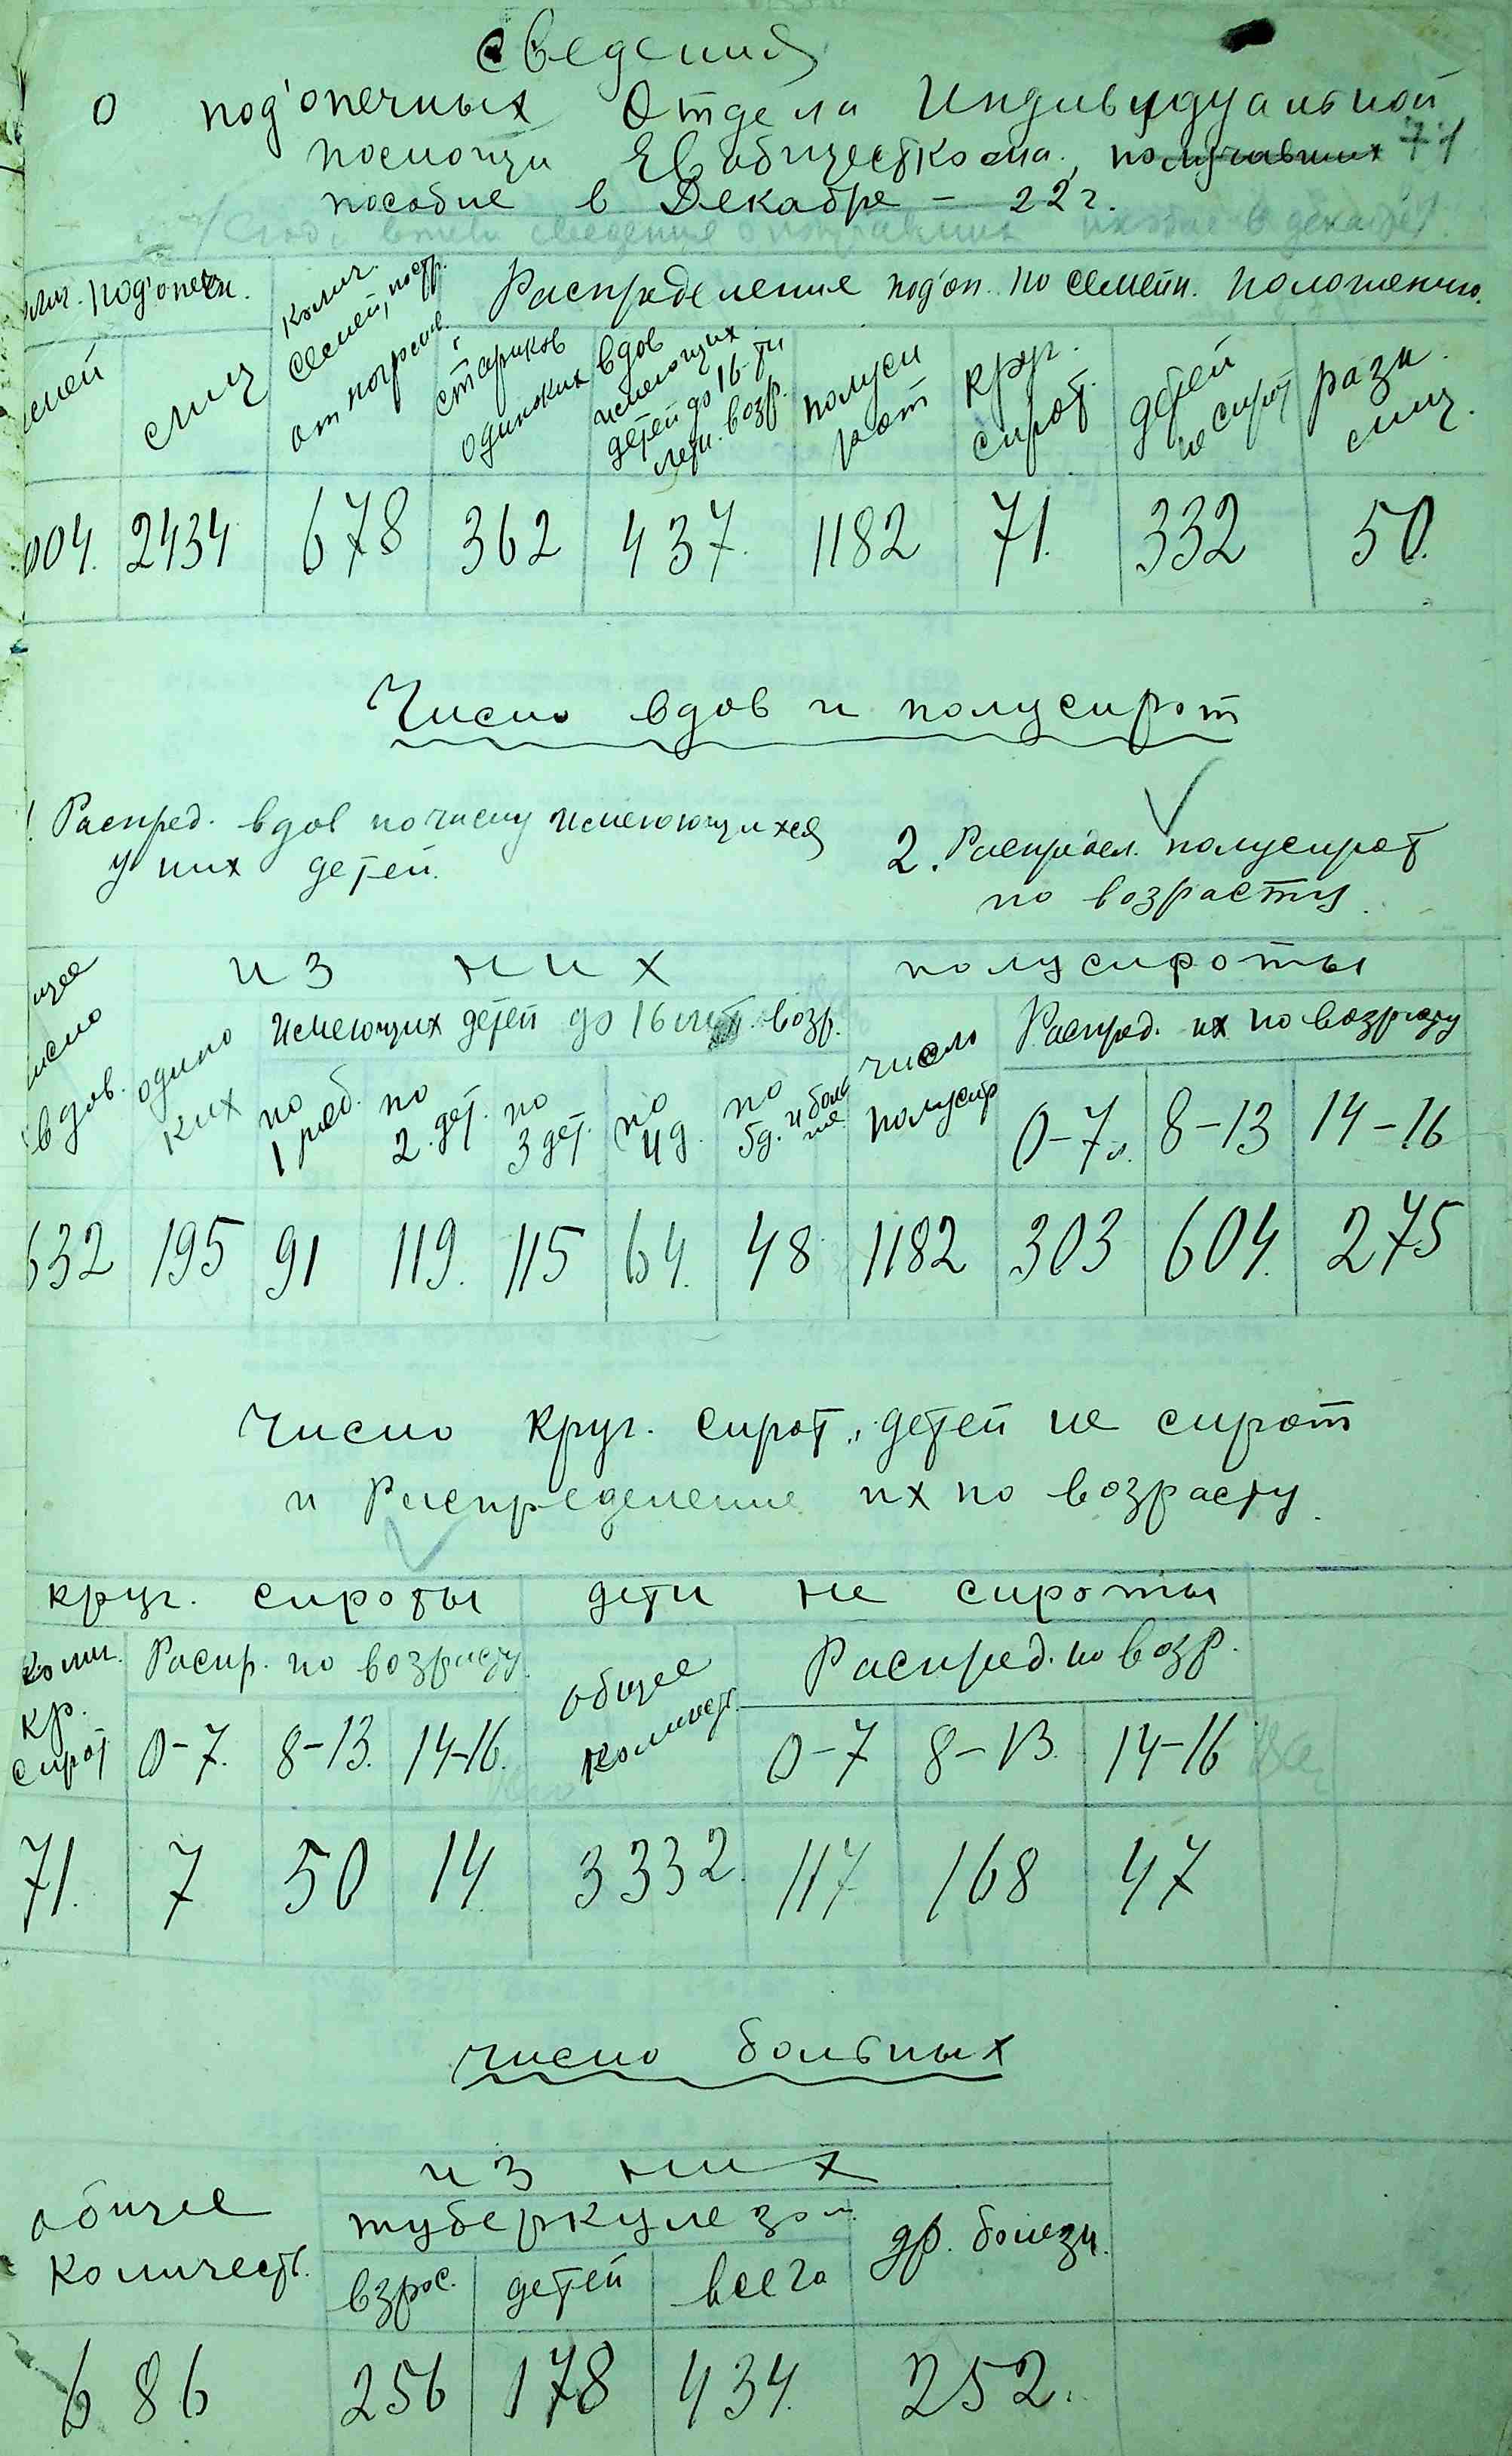 Сведения
о под'опечных Отдела Индивидуальной
помощи Евобщесткома, получавших 71
пособие в Декабре – 22 г.
сведения в декабре
под'опечн.
Колич. семей, постр. от погром.
Распределение под'оп. по семейн. положению.
емей
лиц
стариков одиноких
вдов имеющих детей до 16-ти летн. возр.
полуси рот
круг. сирот.
детей не сирот
разн. лиц.
004. 2434 678 362 437. 1182 71. 332 50.
Число вдов и полусирот
1. Распред. вдов по числу имеющихся
у них детей.
2. Распредел. полусирот
по возрасту.
щее число вдов.
из них
полусироты
одино ких
Имеющих детей до 16 лет. возр.
число полусир
Распред. их по возрасту
по 1 реб.
по 2 дет.
по 3 дет.
по 4 д.
по 5 д. и боль ше
0–7 л. 8–13 14–16
632 195 91 119. 115 64. 48 1182 303 604. 275
Число круг. сирот, детей не сирот
и Распределение их по возрасту.
круг. сироты дети не сироты
Колич. кр. сирот
Распр. по возрасту
общее количест.
Распред. по возр.
0–7. 8–13. 14–16. 0–7 8–13. 14–16
71. 7 50 14 3332. 117 168 47
число больных
общее количеств.
из них
туберкулезом
др. болезн.
взрос. детей всего
686 256 178 434. 252.